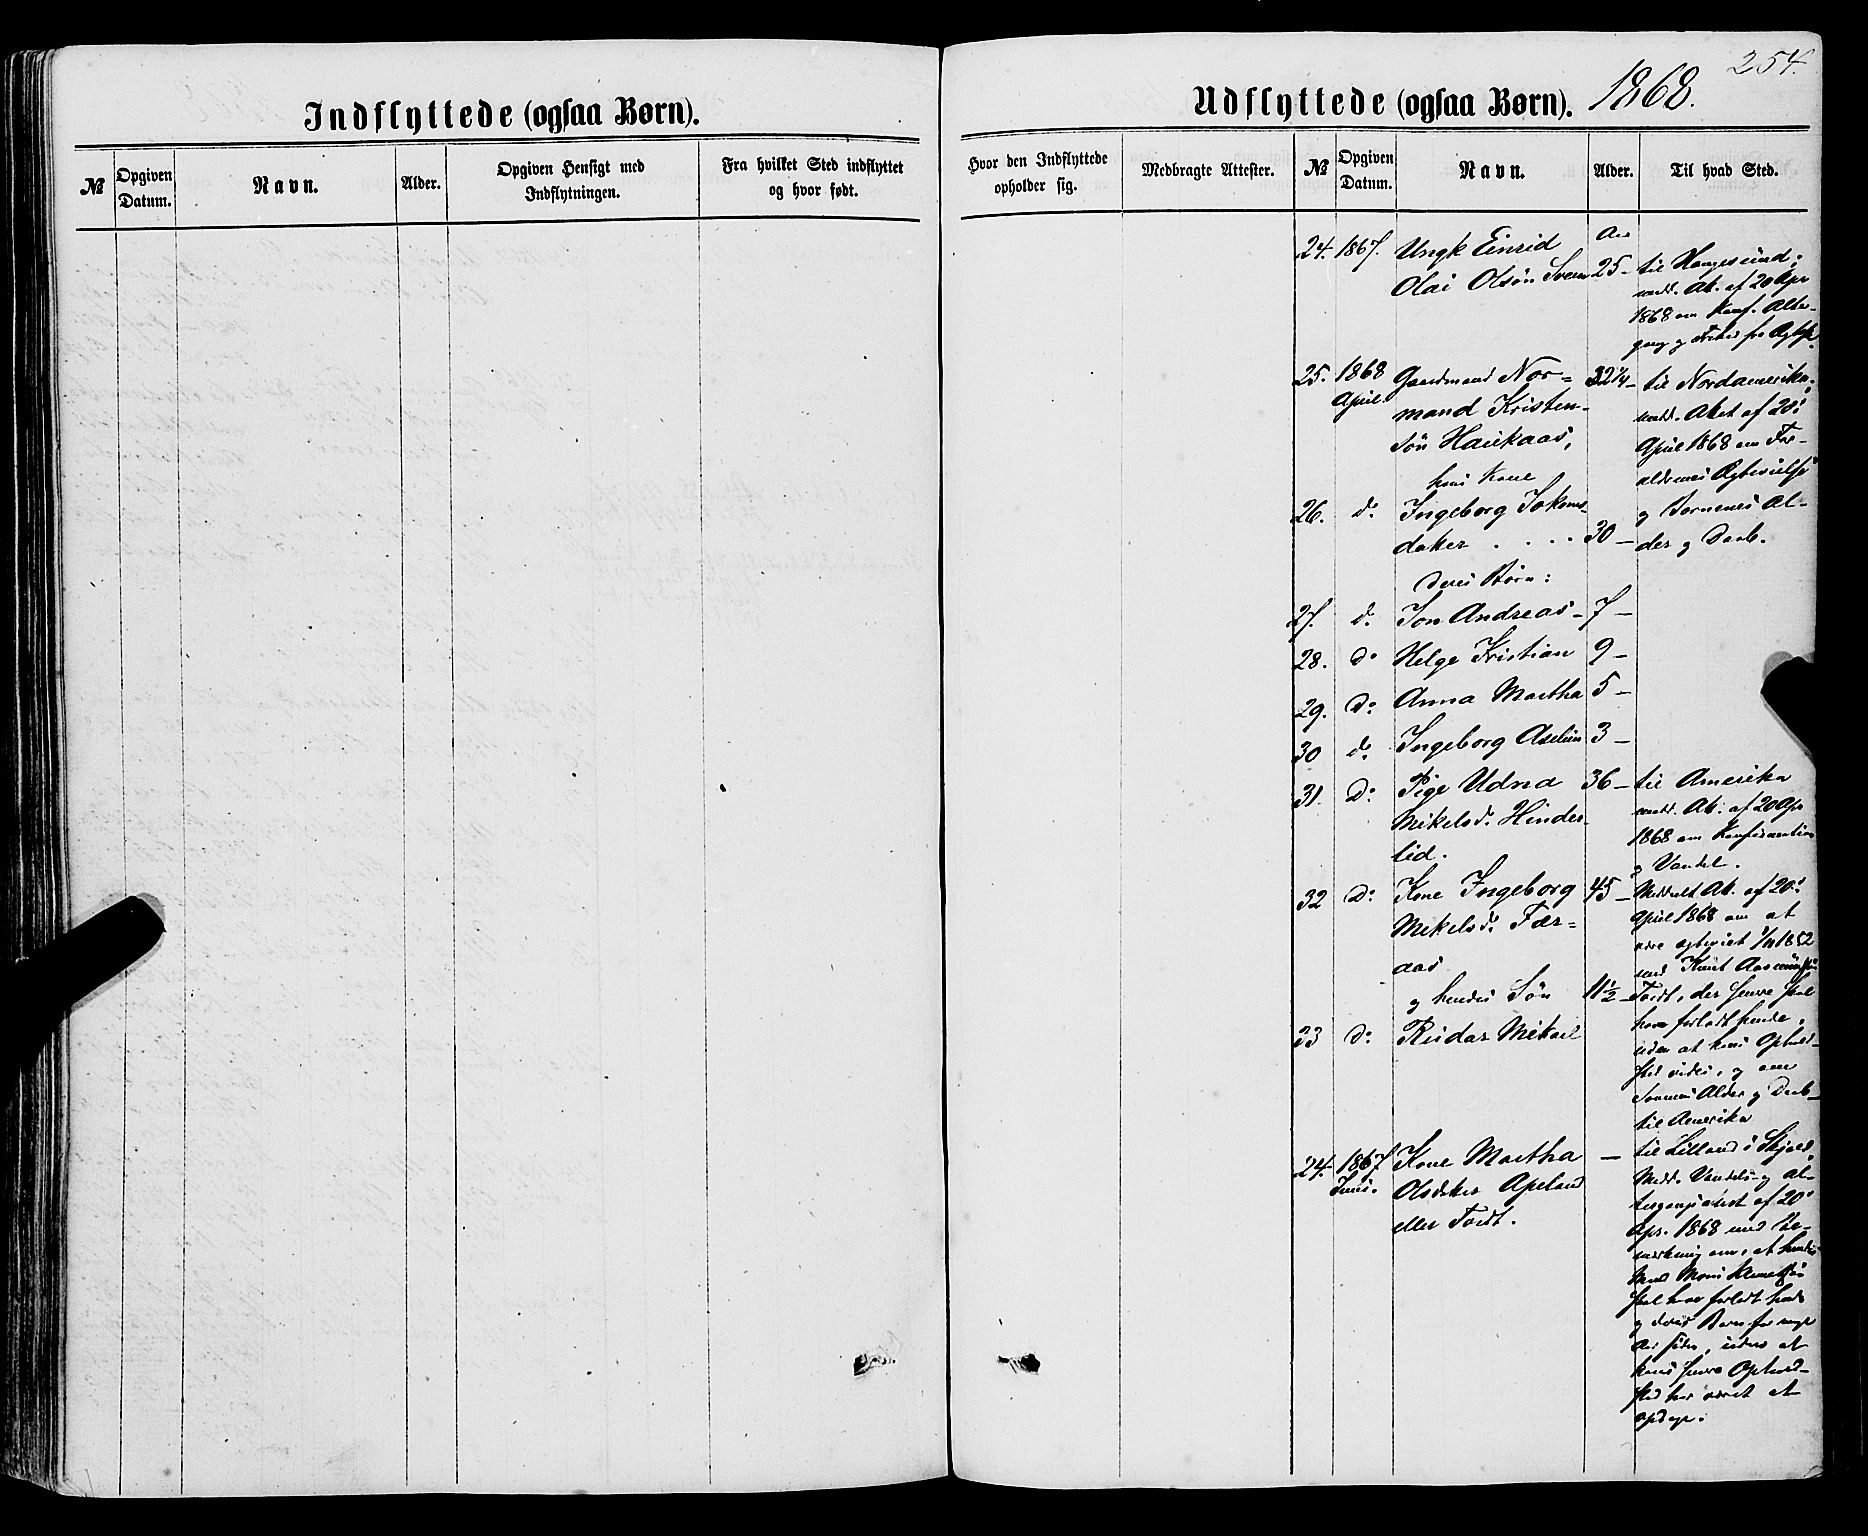 254.
Indflyttede (ogsaa Børn).
№
Opgiven Datum.
Navn.
Alder.
Opgiven Hensigt med Indflytningen.
Fra hvilket Sted indflyttet og hvor født.
Udflyttede (ogsaa Børn). 1868.
Hvor den Indflyttede opholder sig.
Medbragte Attester.
№
Opgiven Datum.
Navn.
Alder.
Til hvad Sted.
24. 1867. Ungk Einrid
Olai Olsøn 25 -
til Haugesund;
medd. At. af 20 Apr
1868 om Konf. Alter-
gang og
25. 1868 Gaardmand Nor= 32¼ - til Nordamerika,
April. mand Kristen-
søn Haukaas,
medd. Atest af 20'
April 1868 om For-
ældrenes Ægtevielse
hans Kone
26. d. Ingeborg
daker . . . . 30 -
og Børnenes Al-
der og Daab.
deres Børn:
27. d. Jon Andreas - 7 -
28. d. Helge Kristian 9 -
29. d. Anna Martha 5 -
30 d. Ingeborg Aselin 3 -
31. d. Pige Udna 36 - til Amerika
Mikelsd. Hinder-
lid.
medd. At. af 20 Apr
1868 om Konfirmation
og Vandel.
32 d. Kone Ingeborg 45 -
Mikelsd. Fær=
aas
Meddelt At. af 20'
April 1868 om at
være egteviet 1/11 1852
med Knut
og hendes Søn 11½ -
33 d. Reidar Mikael
Fordt, der senere skal
have forladt hende,
uden at hans Ophold-
sted vides, og om
Sønnens Alder og Daab
til Amerika
24. 1867 Kone Martha —
Juni. Olsdtter Apeland
eller Fordt.
til Lilland i Skjold,
Medd. Vandels- og Al-
tergangsatest af 20'
Apr. 1868 med Be-
mærkning om, at hendes
Mand Mons
skal have forladt hende
og deres Børn for nogle
Aar siden, uden at
hans senere Ophold-
sted har været at
opdage.